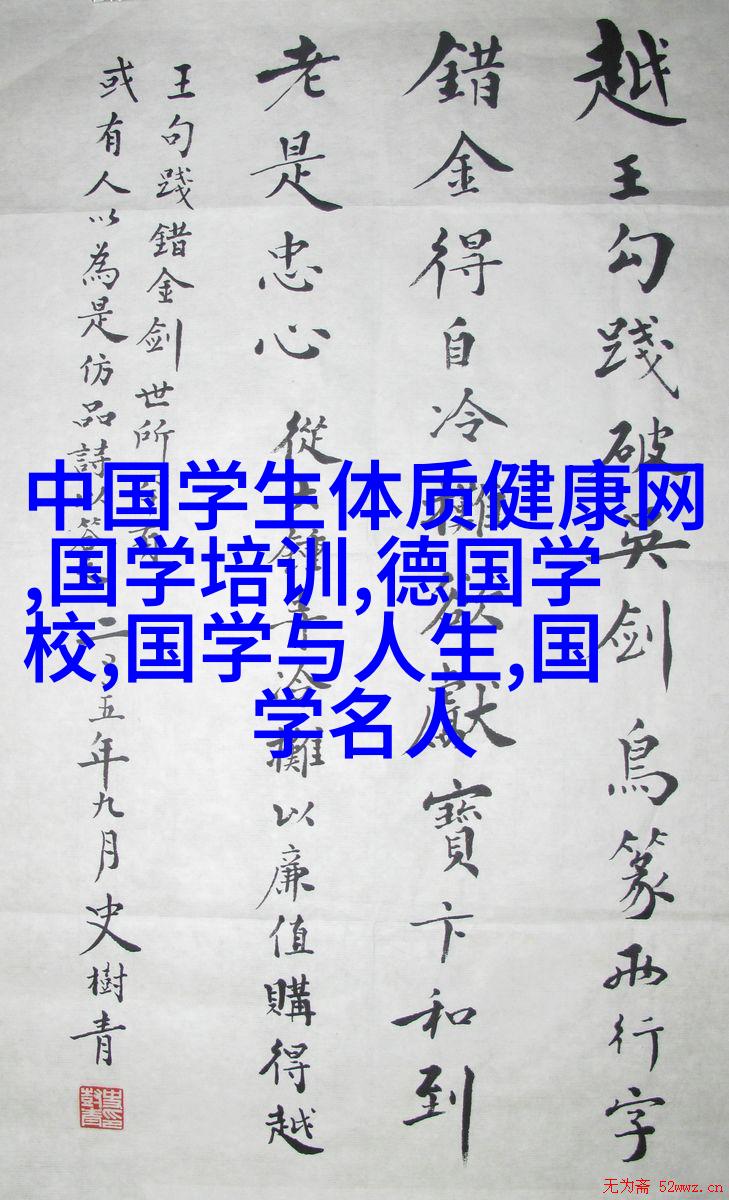 越王勾踐破吳剑鳥篆两行字
錯金得自冷攤欲獻寶卞和到
老是忠心 從大鐘寺冷攤以廉值購得越
王句踐錯金剑世所
或有人以為是仿品詩以答 二〇〇五年九月史樹青
中国学生体质健康网
,国学培训,德国学
校,国学与人生,国
学名人
无为斋 52wwz.cn